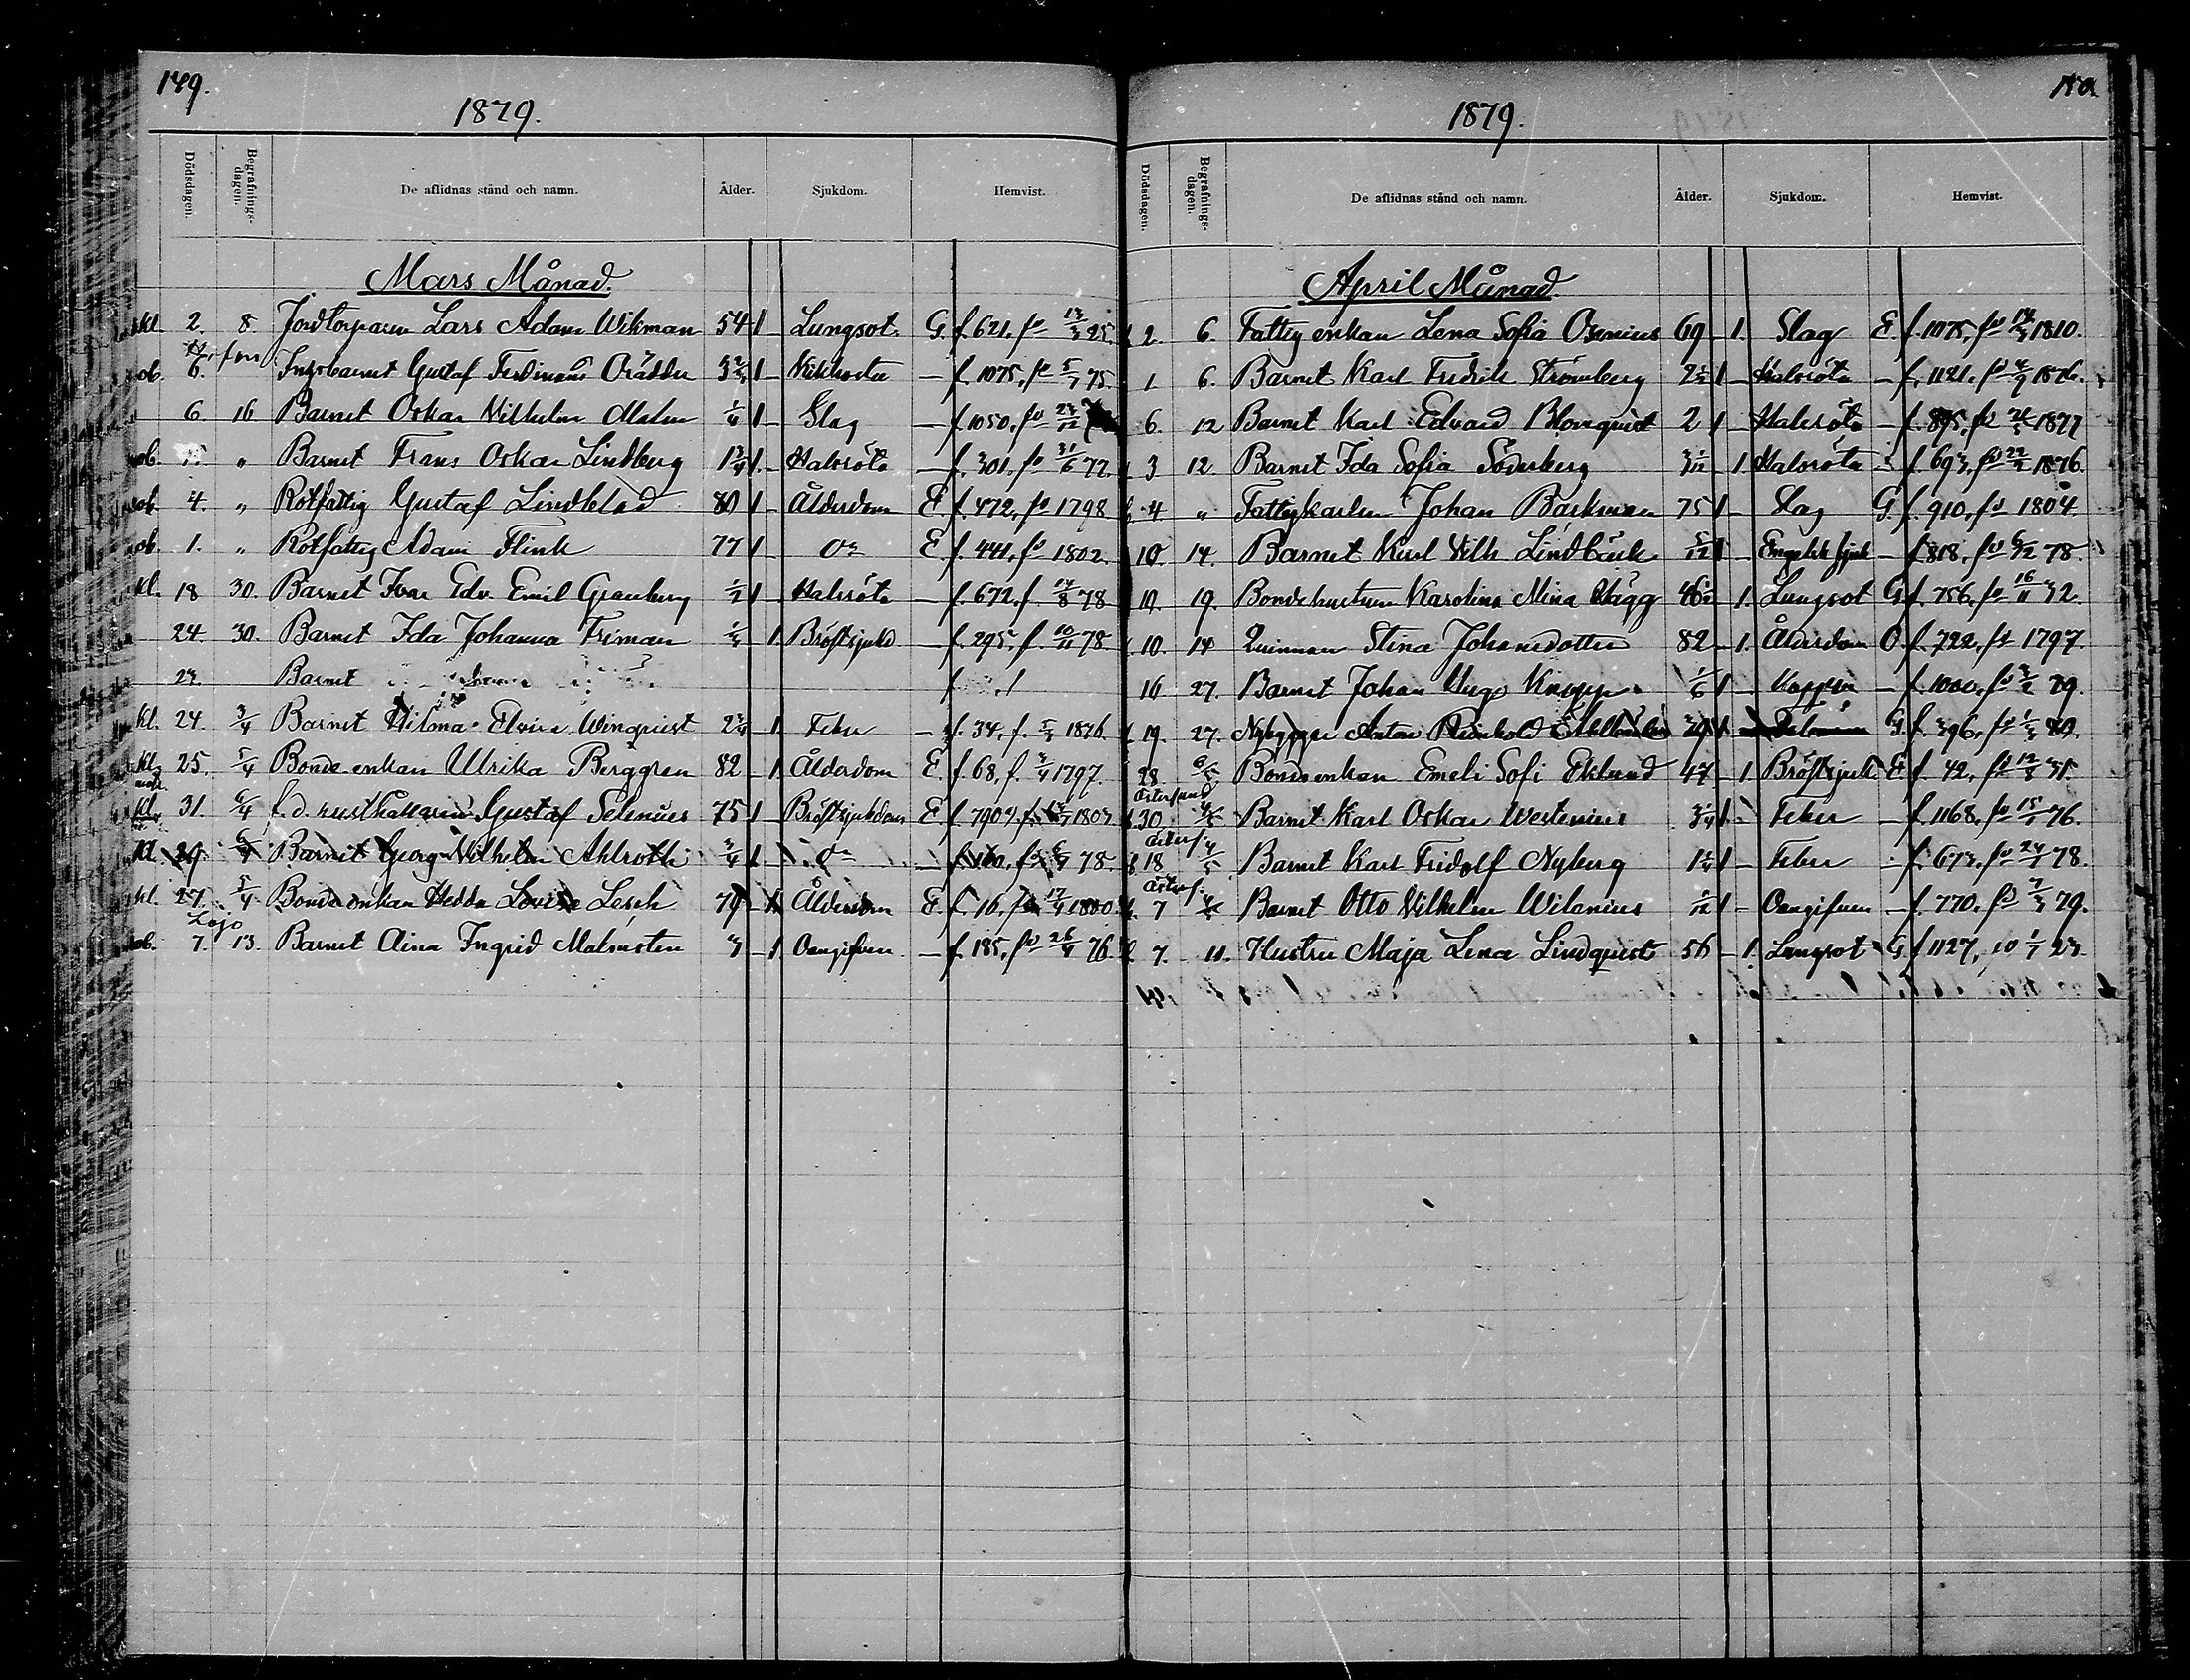 149.
1879.
Dödsdagen. Begrafnings-dagen. De aflidnas stånd och namn. Ålder. Sjukdom. Hemvist.
Mars Månad.
kl. 2. 8. Jordtorparen Lars Adam Wikman 54 1 – Lungsot G. f. 621, fd 13/3 25.
6. Gustaf Ferdinand 1 – Kikhosta – f. 1075, fd 5/7 75.
6 16 Barnet Oskar Vilhelm Malm 1/4 1 – Slag – f. 1050, fd
ob. " Barnet Frans Oskar Lindberg 1 3/4 1. – Halsröta – f. 301, fd 31/6 77.
ob. 4. " Rotfattig Gustaf Lindblad 80 1 – Ålderdom E. f. 472, fd 1798
ob. 1. " Rotfattig Adam Flink 77 1 – do E f. 441, fd 1802.
kl. 18 30. Barnet Ivar Edv. Emil Granberg 1/2 1 – Halsröta – f. 672, f. 14/8 78
24. 30. Barnet Ida Johanna Friman 1/3 – 1. Bröstsjukd. – f. 295, f. 10/11 78.
Barnet
kl. 24. 3/4 Barnet Hilma Elvira Winqvist 2 3/4 – 1. Feber – f. 34, f. 1876.
kl. 25. 5/4 Bonde enkan Ulrika Berggren 82 – 1. Ålderdom E. f. 68, f. 3/4 1797.
kl. 31. 6/4 f.d. rusthållaren Gustaf Selenius 75 1 Bröstsjukdom E. f. 790 1803.
kl. 29. 6/4 Barnet Georg Vilhelm Ahlroth 3/4 1 do – f. 100, 78.
kl. 27. 5/4 Bonde enkan Hedda Lovisa Lesch 79 – 1. Ålderdom E. f. 16, 17/4 1800.
Lojo
ob. 7. 13. Barnet Aina Ingrid Malmsten 3 – 1. Oangifven – f. 185, fd 26/4 76.
150
1879.
Dödsdagen. Begrafnings-dagen. De aflidnas stånd och namn. Ålder. Sjukdom. Hemvist.
April Månad
2. 6. Fattig enkan Lena Sofia Osenius 69 – 1. Slag E. f. 1075, fd 1810.
1 6. Barnet Karl Fredrik Strömberg 2 1/2 1 – Halsröta – f. 1121, fd 1876.
6. 12 Barnet Karl Edvard Blomqvist 2 1 – Halsröta – f. 895, fd 1877
3 12. Barnet Ida Sofia Söderberg – 1. Halsröta – f. 693, fd 1876.
4 " Fattigkarlen Johan Barkman 75 1 – Slag G. f. 910, fd 1804.
10. 14. Barnet Karl Vilh. Lindbäck 5/12 1 – Engelsk sjuk – f. 818, fd 78.
19. Bondehustrun Karolina Mina Wägg 46 1/2 1. Lungsot G f. 756, fd 16/11 32.
10. 14 Quinnan Stina Johansdotter 82 – 1. Ålderdom O f. 722, fd 1797.
16 27. Barnet Johan Hugo 1/6 1 – Koppor – f. 1000, fd 3/2 79.
19. 27. Anton Reinhold G. f. 396, fd
28 6/5 Bondeenkan Emeli Sofi Eklund 47 – 1. Bröstsjuk E f. 42, fd 12/8 31.
Östersund
30. 4/5 Barnet Karl Oskar Westenius 3 1/4 1 – Feber – f. 1168, fd 15/1 76.
Östers.
18 4/5 Barnet Karl Fridolf Nyberg 1 1/4 1 – Feber – f. 673, fd 78.
Östers.
7 Barnet Otto Vilhelm Wilenius 1/12 1 – Oangifven – f. 770, fd 7/3 79.
7. 11. Hustru Maja Lena Lindqvist 56 – 1. Lungsot G. f 1127, fd 1/7 23.